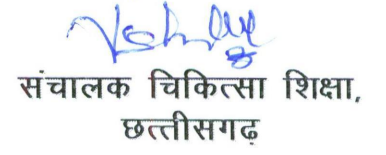 संचालक चिकित्सा शिक्षा,
छत्तीसगढ़